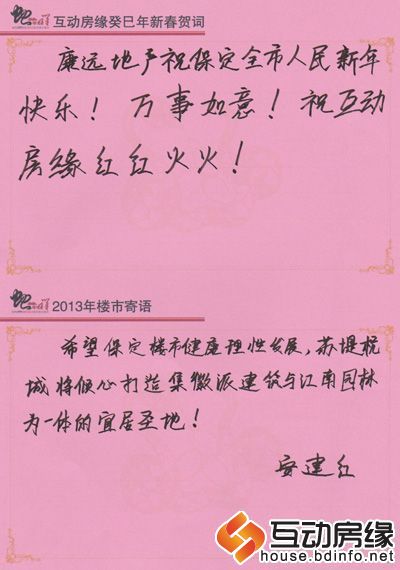 互动房缘癸巳年新春贺词
廉远地产祝保定全市人民新年
快乐！万事如意！祝互动
房缘红红火火！
2013年楼市寄语
希望保定楼市健康理性发展，苏堤杭
城将倾心打造集徽派建筑与江南园林
为一体的宜居圣地！
安建红
互动房缘
house.bdinfo.net